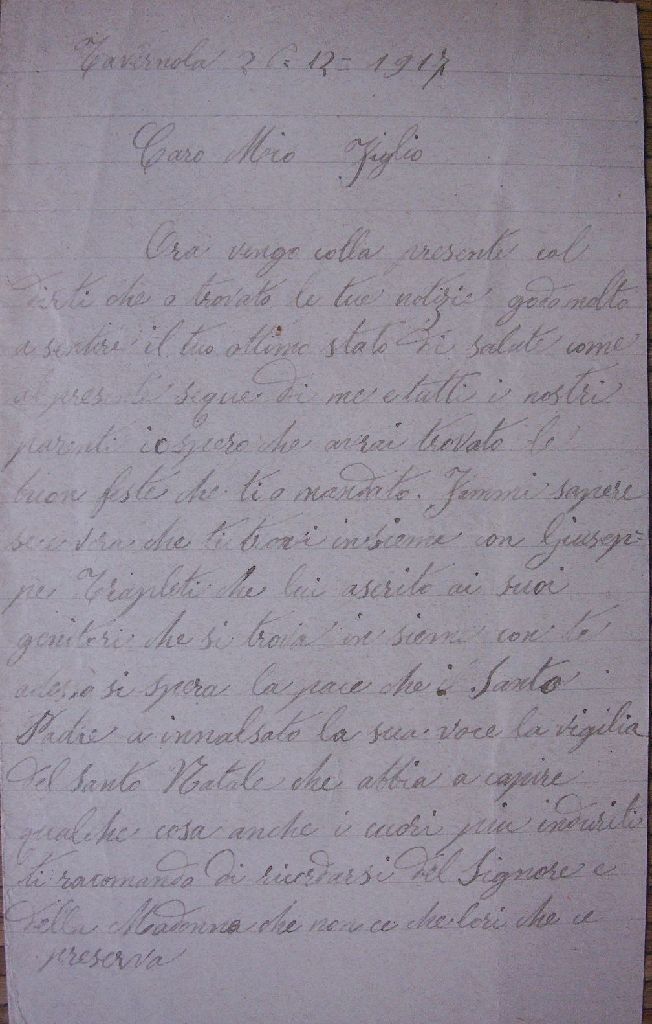 Tavernola 26 = 12 = 1917
Caro Mio Figlio
Ora vengo colla presente col
dirti che o trovato le tue notizie godo molto
a sentire il tuo ottimo stato di salute come
al presente segue di me e tutti i nostri
parenti io spero che avrai trovato le
buon feste che ti o mandato. Fammi sapere
se e vra che ti trovi insieme con Giusep=
pe che lui a scrito ai suoi
genitori che si trova in sieme con te
adesso si spera la pace che i Santo
Padre a innalsato la sua voce la vigilia
del Santo Natale che abbia a capire
qualche cosa anche i cuori piu induriti
ti racomando di ricordarsi del Signore e
della Madonna che non ce che lori che ce
preserva